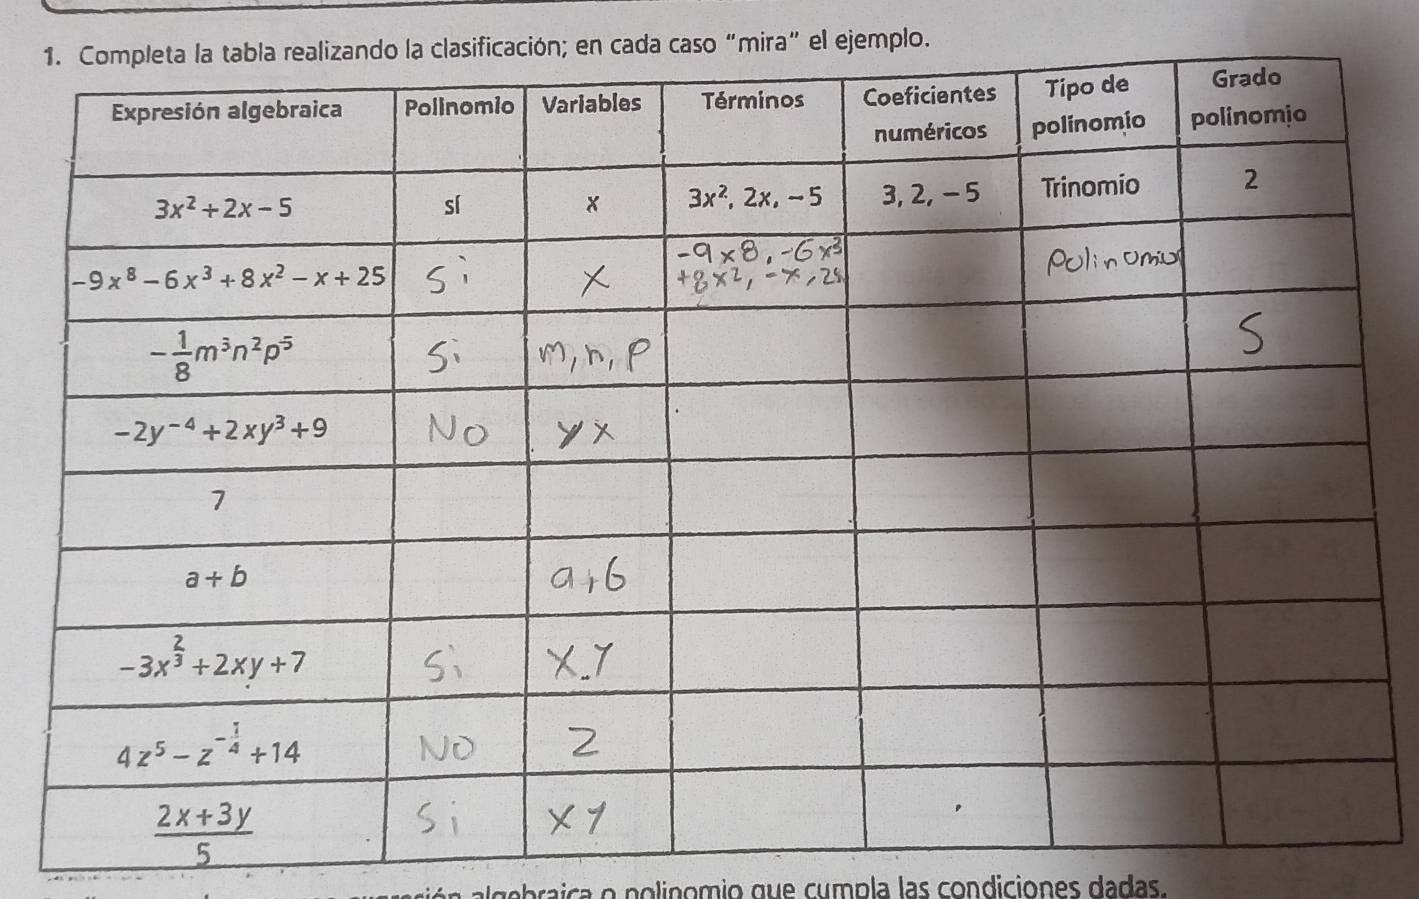 1. Completa la tabla realizando la clasificación; en cada caso "mira" el ejemplo.
Expresión algebraica Polinomio Variables Términos Coeficientes numéricos Tipo de polinomio Grado polinomio
3x² + 2x - 5 sí x 3x², 2x, -5 3, 2, -5 Trinomio 2
-9x⁸ - 6x³ + 8x² - x + 25 Si x -9x8, -6x³ Polinomio
+8x2, -x, 25
-1/8 m³n²p⁵ Si m, n, p 5
-2y⁻⁴ + 2xy³ + 9 No y x
7
a + b a + b
-3x^(2/3) + 2xy + 7 Si x.y
4z⁵ - z^(-1/4) + 14 NO z
(2x + 3y)/5 Si x y
algebraica o polinomio que cumpla las condiciones dadas.